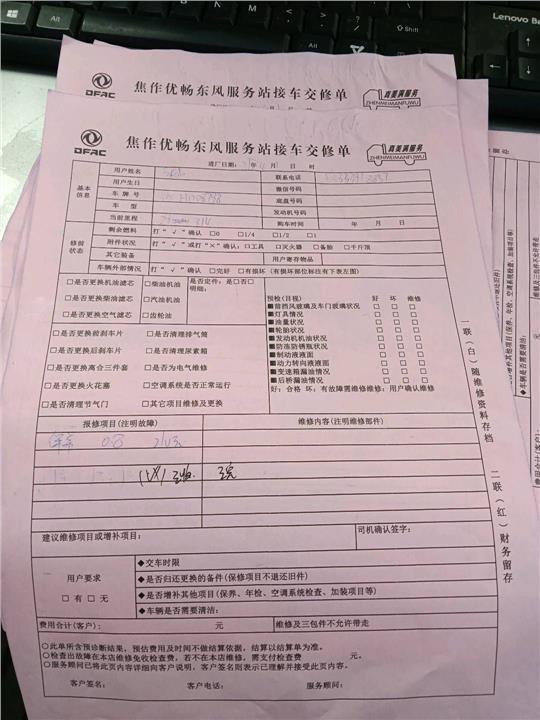 Lenovo
焦作优畅东风服务站接车交修单
DFAC
真美满服务
ZHENMEIMANFUWU
焦作优畅东风服务站接车交修单
DFAC
真美满服务
ZHENMEIMANFUWU
进厂日期： 月 日 时
基本信息
用户姓名 联系电话
用户生日 微信号码
车牌号 底盘号码
车型 发动机号码
当前里程 购车时间 年 月 日
修前状态
剩余燃料 打“√”确认 □0 □1/4 □1/2 □1
附件状况 打“√”或打“×”确认：□工具 □灭火器 □备胎 □千斤顶
其它装备 用户寄存物品
车辆外部情况 打“√”确认 □完好 □有损坏（有损坏部位标注有下表左图）
□是否更换机油滤芯 □柴油机油 是否定件：是□否□
□是否更换柴油滤芯 □汽油机油 明细：
□是否更换空气滤芯 □齿轮油
□是否更换前刹车片 □是否清理排气筒
□是否更换后刹车片 □是否清理尿素箱
□是否更换离合三件套 □是否为电气维修
□是否更换火花塞 □空调系统是否正常运行
□是否清理节气门 □其它项目维修及更换
预检（目视） 好 坏 维修
■前挡风玻璃及车门玻璃状况 □ □ □
■灯具情况 □ □ □
■油量状况 □ □ □
■轮胎状况 □ □ □
■发动机机油状况 □ □ □
■防冻防锈瓶状况 □ □ □
■制动液液面 □ □ □
■动力转向液液面 □ □ □
■变速箱漏油情况 □ □ □
■后桥漏油情况 □ □ □
好：合格 坏：有故障需修维修：用户确认维修
报修项目（注明故障） 维修内容（注明维修部件）
建议维修项目或增补项目： 司机确认签字：
用户要求
□有□无
◆交车时限
◆是否归还更换的备件（保修项目不退还旧件）
◆是否增补其他项目（保养、年检、空调系统检查、加装项目等）
◆车辆是否需要清洁：
费用合计（客户）： 元 维修及三包件不允许带走
○此单所含预诊断结果，预估费用及时间不做结算依据，结算以结算单为准。
○检查出故障在本店维修免收检查费，若不在本店维修，需支付检查费 元。
○服务顾问已将此页内容详细向客户说明，客户签名则表示已理解并接受此页内容。
客户签名： 客户电话： 服务顾问：
一联（白）随维修资料存档 二联（红）财务留存